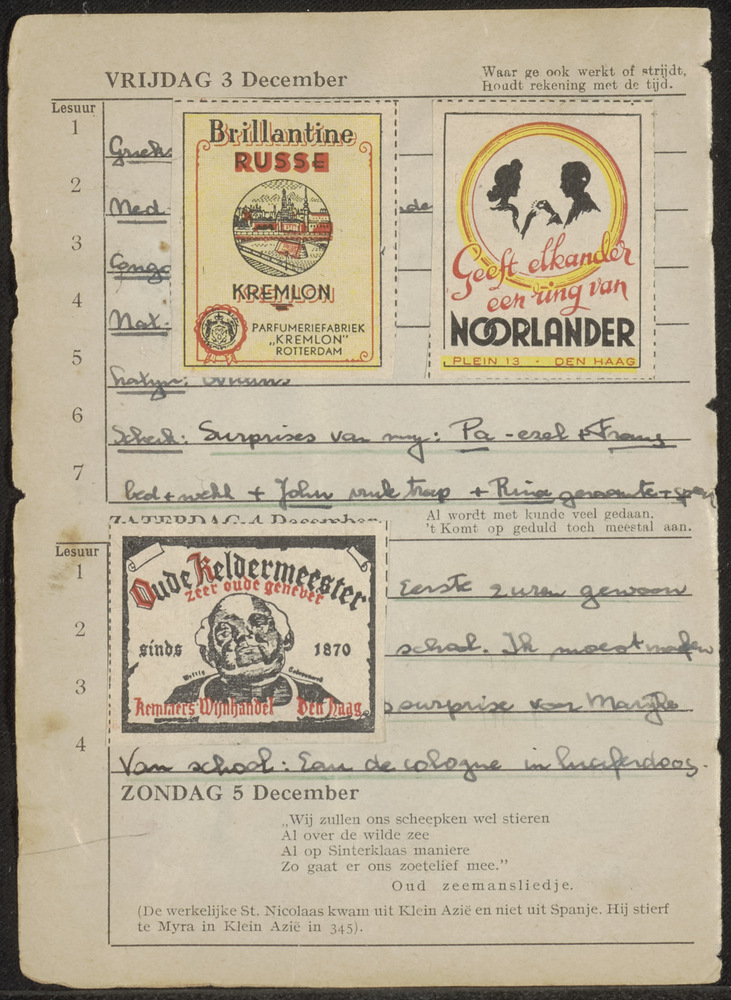 VRIJDAG 3 December
Waar ge ook werkt of strijdt,
Houdt rekening met de tijd.
Lesuur
1
2
Ned.
3
4
Nat.
5
6
7
Brillantine
RUSSE
KREMLON
PARFUMERIEFABRIEK
„KREMLON"
ROTTERDAM
Geeft elkander
een ring van
NOORLANDER
PLEIN 13 - DEN HAAG
Surprises van my: Pa - ezel + Frans
bed + + John + Rina
ZATERDAG 4 December
Al wordt met kunde veel gedaan,
't Komt op geduld toch meestal aan.
Lesuur
1
2
3
4
Oude Keldermeester
zeer oude genever
sinds 1870
Wettig Gedeponeerd
Remmers Wijnhandel Den Haag
Eerste 2 uren gewoon
school. Ik moest maken
surprise voor Marijke
Van school: Eau de cologne in luciferdoos.
ZONDAG 5 December
„Wij zullen ons scheepken wel stieren
Al over de wilde zee
Al op Sinterklaas maniere
Zo gaat er ons zoetelief mee."
Oud zeemansliedje.
(De werkelijke St. Nicolaas kwam uit Klein Azië en niet uit Spanje. Hij stierf
te Myra in Klein Azië in 345).